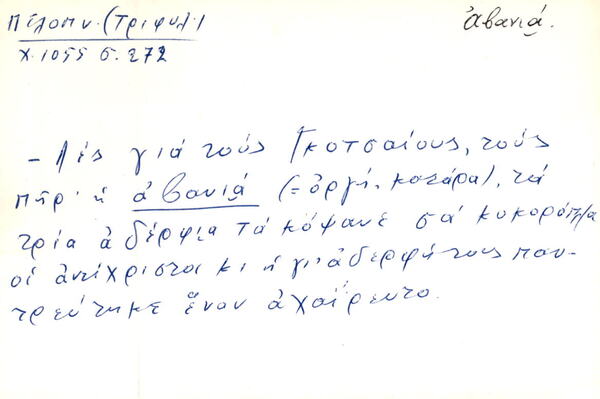 Πελοπν. (Τριφυλ.)
Χ. 1055 σ. 272
ἀβανιά̤.
- Λὲς γιά τούς Γκοτσαίους, τούς
πῆρ' ἡ ἀβανιά̤ (= ὀργή, κατάρα), τά
τρία ἀδέρφια τά κόψανε σά κυκορόπ'λα
οἱ ἀντίχριστοι κι ἡ γι' ἀδερφή τους παν-
τρεύτηκε ἕναν ἀχαΐρευτο.